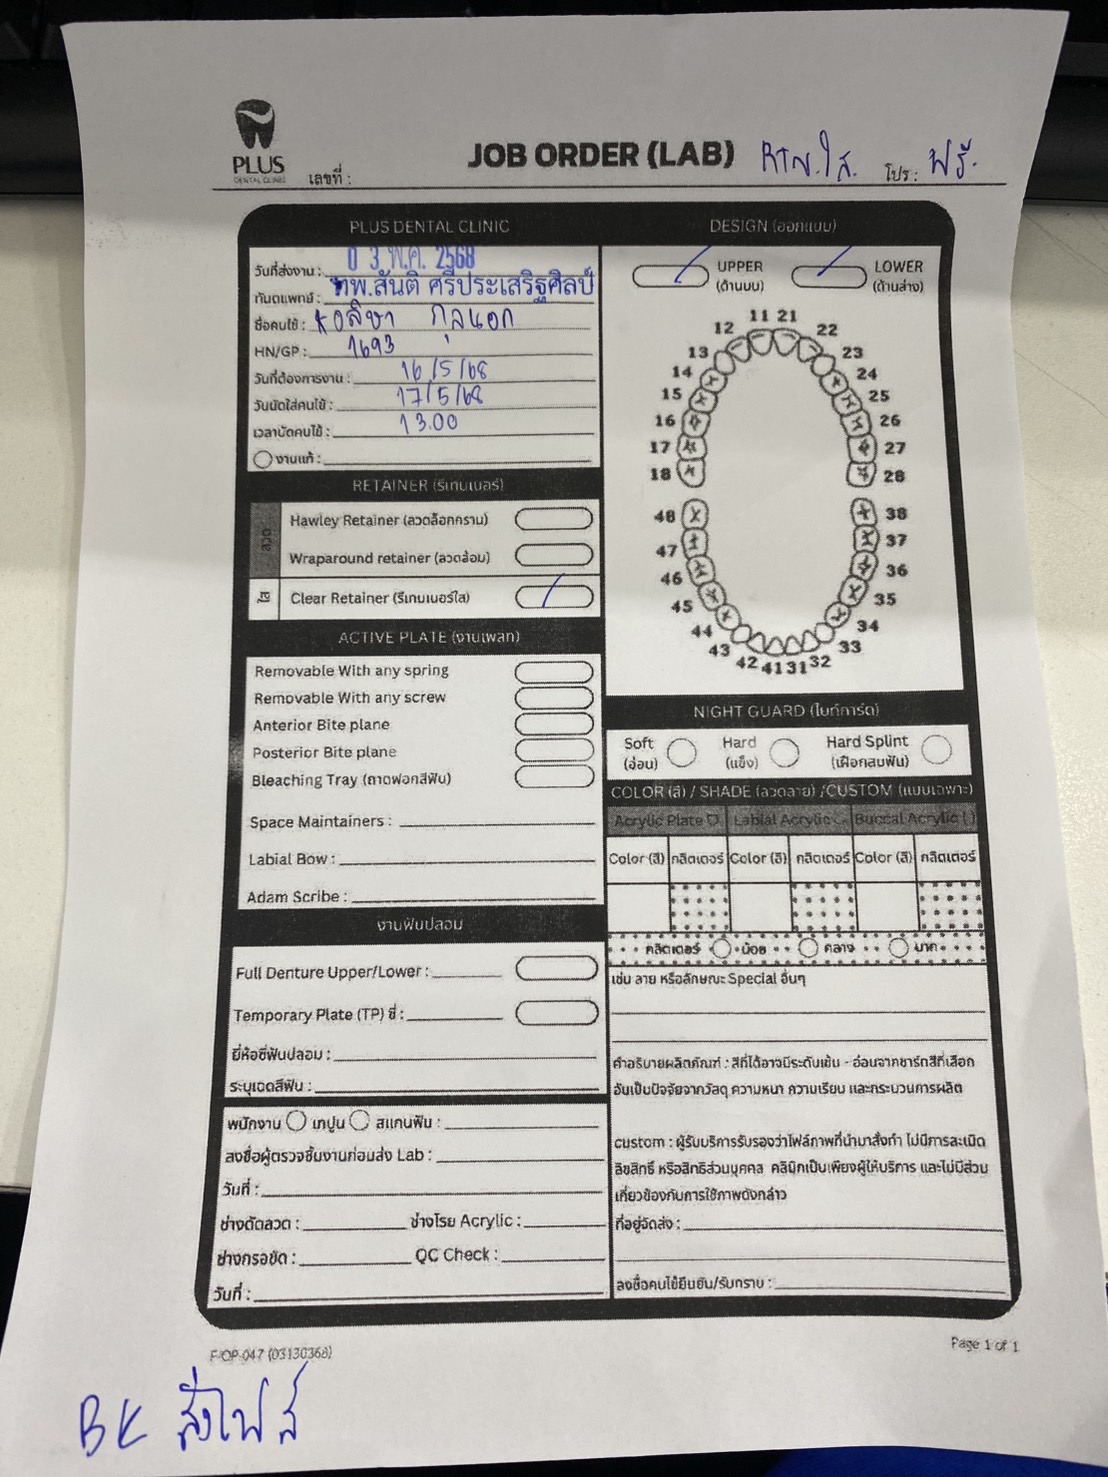 PLUS
DENTAL CLINIC
เลขที่ :
JOB ORDER (LAB) RTN.ใส. โปร : ฟรี.
PLUS DENTAL CLINIC
วันที่ส่งงาน : 0 3 พ.ค. 2568
ทันตแพทย์ : ทพ.สันติ ศรีประเสริฐศิลป์
ชื่อคนไข้ : กุลนอก
HN/GP : 1693
วันที่ต้องการงาน : 16/5/68
วันนัดใส่คนไข้ : 17/5/68
เวลานัดคนไข้ : 13.00
งานแก้ :
RETAINER (รีเทนเนอร์)
ลวด
Hawley Retainer (ลวดล็อกกราม)
Wraparound retainer (ลวดล้อม)
ใส
Clear Retainer (รีเทนเนอร์ใส)
ACTIVE PLATE (งานเพลท)
Removable With any spring
Removable With any screw
Anterior Bite plane
Posterior Bite plane
Bleaching Tray (ถาดฟอกสีฟัน)
Space Maintainers :
Labial Bow :
Adam Scribe :
งานฟันปลอม
Full Denture Upper/Lower :
Temporary Plate (TP) ซี่ :
ยี่ห้อซี่ฟันปลอม :
ระบุเฉดสีฟัน :
พนักงาน เทปูน สแกนฟัน :
ลงชื่อผู้ตรวจชิ้นงานก่อนส่ง Lab :
วันที่ :
ช่างดัดลวด : ช่างโรย Acrylic :
ช่างกรอขัด : QC Check :
วันที่ :
DESIGN (ออกแบบ)
UPPER (ด้านบน)
LOWER (ด้านล่าง)
11 21
12 22
13 23
14 24
15 25
16 26
17 27
18 28
48 38
47 37
46 36
45 35
44 34
43 33
42 41 31 32
NIGHT GUARD (ไนท์การ์ด)
Soft (อ่อน)
Hard (แข็ง)
Hard Splint (เฝือกสบฟัน)
COLOR (สี) / SHADE (ลวดลาย) /CUSTOM (แบบเฉพาะ)
Acrylic Plate Labial Acrylic Buccal Acrylic
Color (สี) กลิตเตอร์ Color (สี) กลิตเตอร์ Color (สี) กลิตเตอร์
กลิตเตอร์ น้อย กลาง มาก
เช่น ลาย หรือลักษณะ Special อื่นๆ
คำอธิบายผลิตภัณฑ์ : สีที่ได้อาจมีระดับเข้ม - อ่อนจากชาร์ตสีที่เลือก
อันเป็นปัจจัยจากวัสดุ ความหนา ความเรียบ และกระบวนการผลิต
custom : ผู้รับบริการรับรองว่าไฟล์ภาพที่นำมาสั่งทำ ไม่มีการละเมิด
ลิขสิทธิ์ หรือสิทธิส่วนบุคคล คลินิกเป็นเพียงผู้ให้บริการ และไม่มีส่วน
เกี่ยวข้องกับการใช้ภาพดังกล่าว
ที่อยู่จัดส่ง :
ลงชื่อคนไข้ยืนยัน/รับทราบ :
F/OP-047 (03130368)
Page 1 of 1
BK ส่งไฟล์